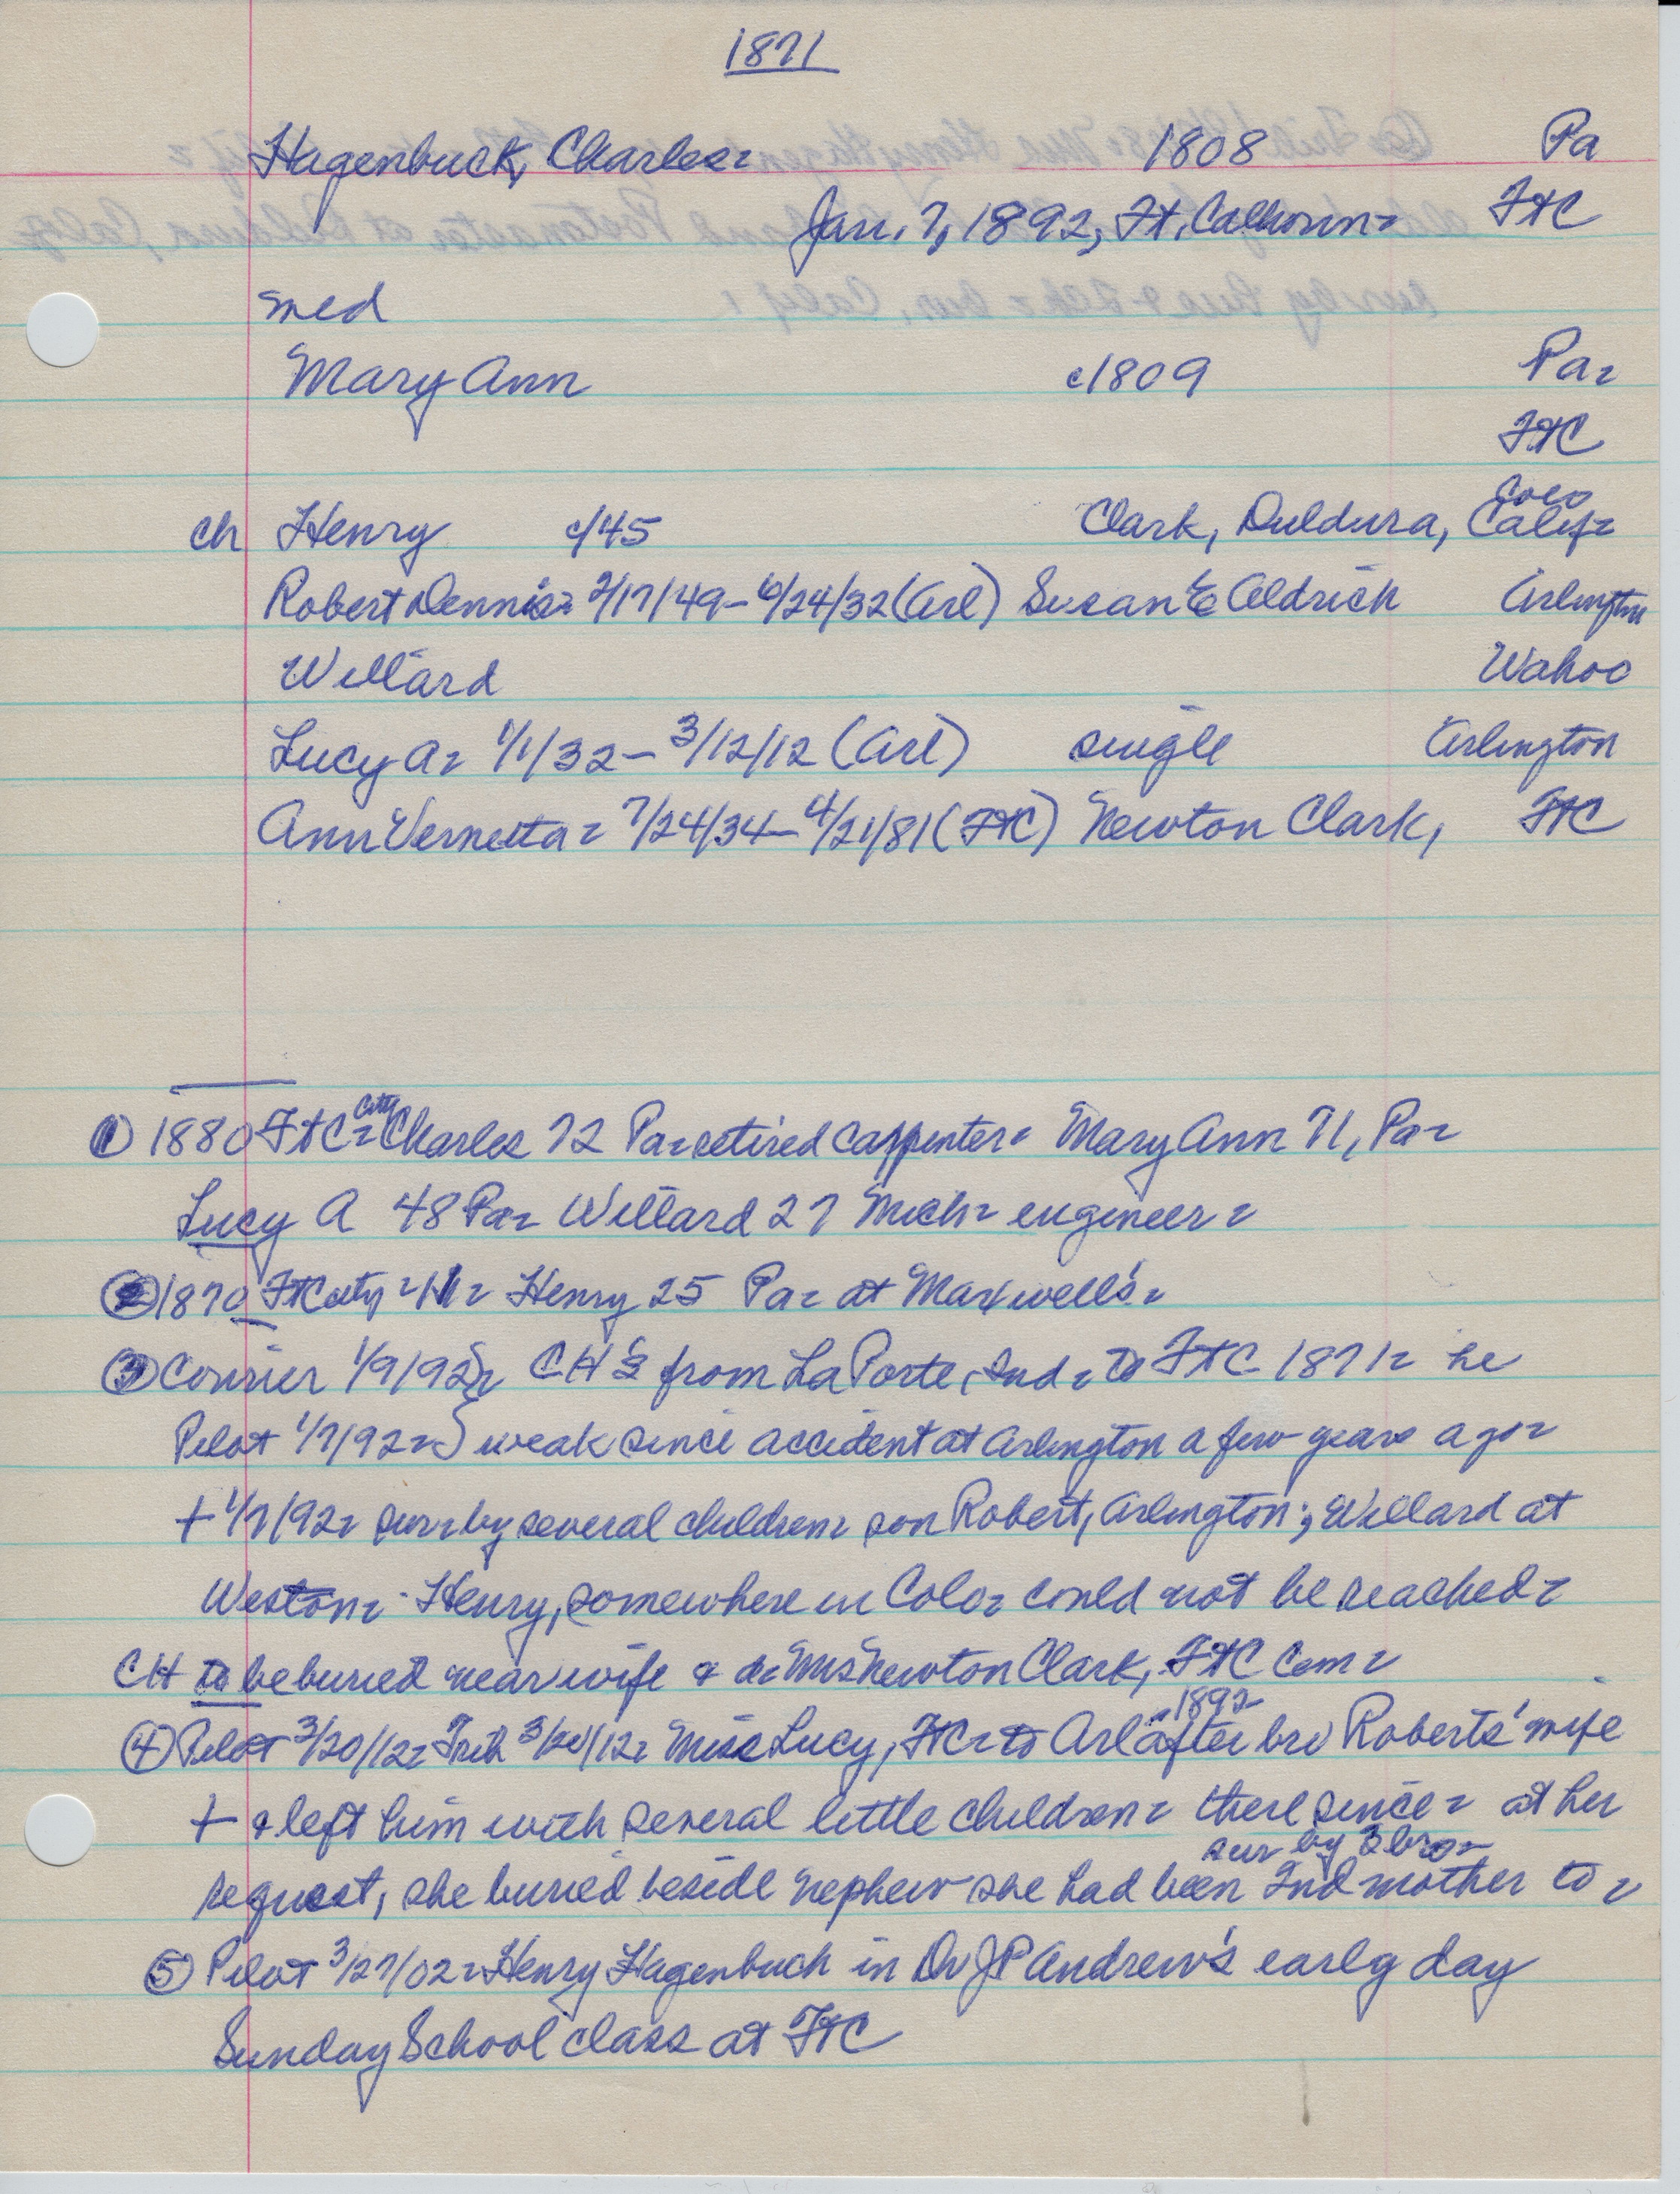 1871
Hagenbuck, Charles= 1808 Pa
Jan. 7, 1892, Ft. Calhoun= FtC
med
Mary Ann c1809 Pa=
FtC
Colo
ch Henry c/45 Clark, Duldura, Calif=
Robert Dennis= 2/17/49-6/24/32 (Arl) Susan E Aldrich Arlington
Willard Wahoo
Lucy A= 1/1/32- 3/12/12 (Arl) single Arlington
Ann Vernetta= 7/24/34- 4/21/81 (FtC) Newton Clark, FtC
① 1880 FtC= City Charles 72 Pa= retired carpenter= Mary Ann 71, Pa=
Lucy A 48 Pa= Willard 27 Mich= engineer=
② 1870 FtC city = Henry 25 Pa= at Maxwell's=
③ Courier 1/9/92= CH's from LaPorte, Ind= to FtC 1871= he
Pilot 1/7/92= } weak since accident at Arlington a few years ago=
+ 1/7/92= sur= by several children= son Robert, Arlington; Willard at
Weston= Henry, somewhere in Colo= could not be reached=
CH to be buried near wife & d= Mrs Newton Clark, FtC Cem=
④ Pilot 3/20/12= Trib 3/21/12= Miss Lucy, FtC= to Arl 1892 after bro Roberts' wife
+ & left him with several little children= there since= at her
sur by 3 bros=
request, she buried beside nephew she had been 2nd mother to=
⑤ Pilot 3/27/02= Henry Hagenbuch in Dr JP Andrew's early day
Sunday School class at FtC